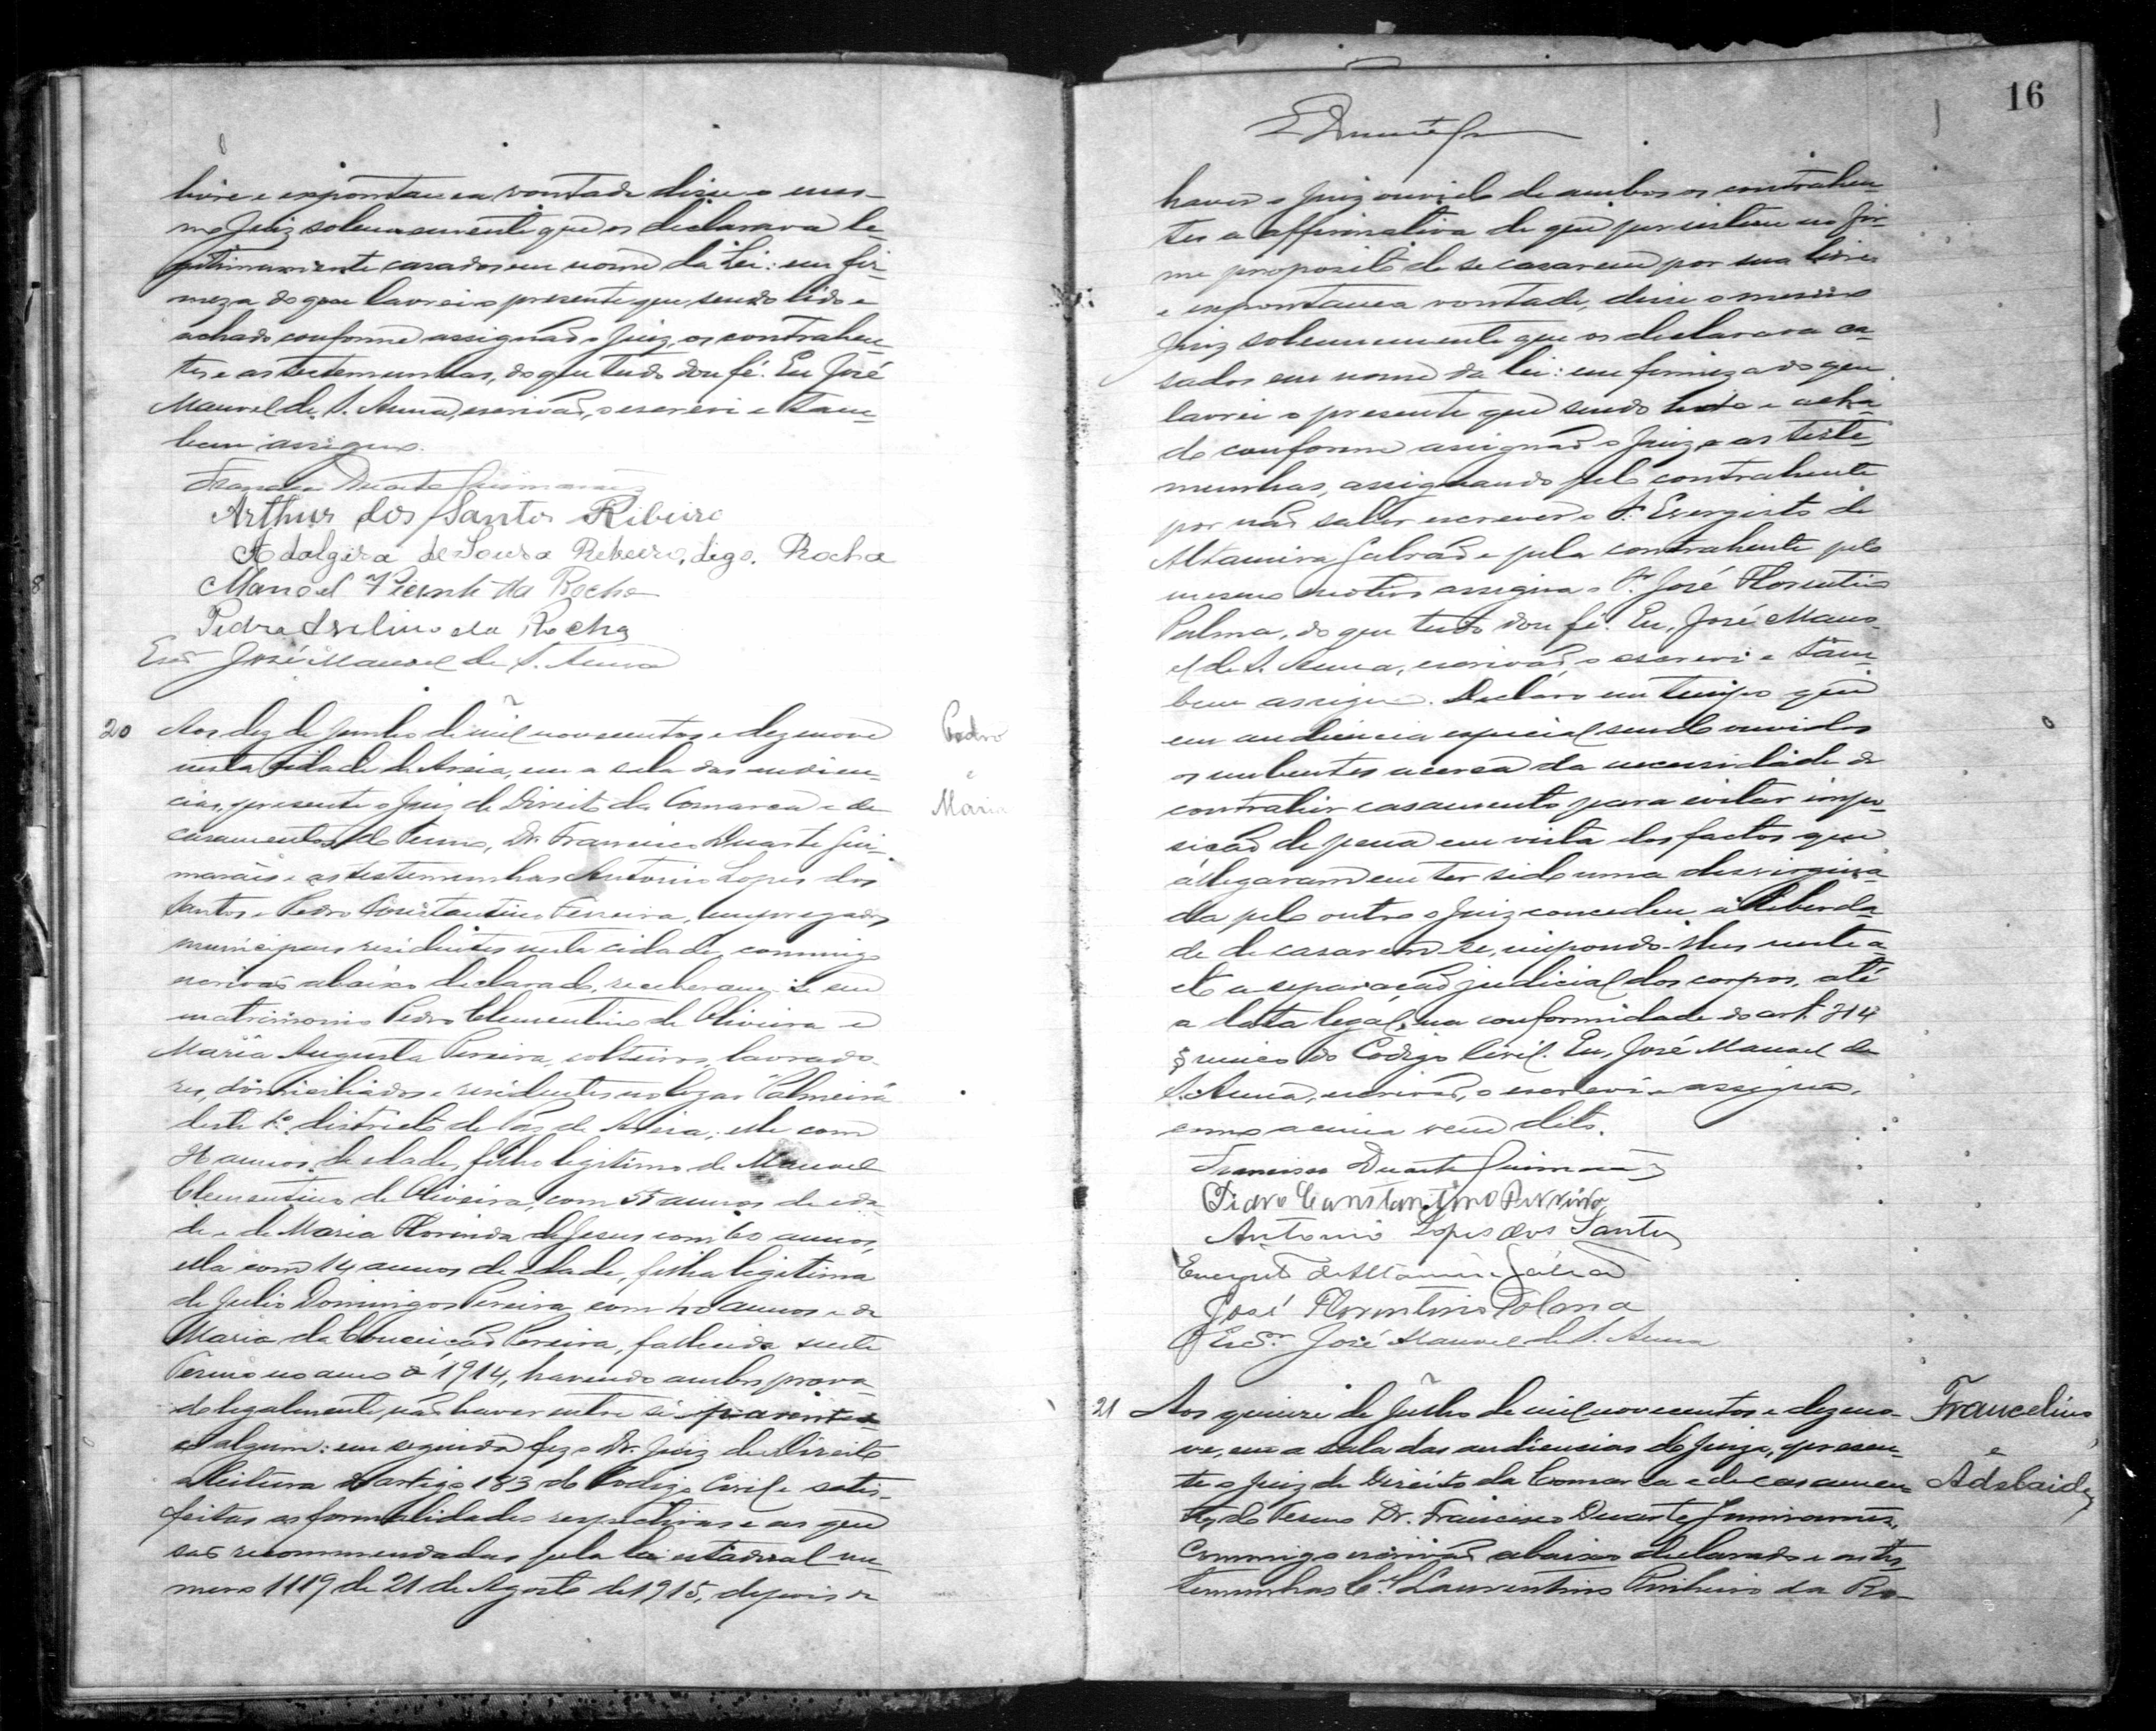 livre e expontanea vontade disse o mes-
mo Juiz solemnemente que os declarava le
gitimamente casados em nome da Lei: em fir-
meza do que lavrei o presente que sendo lido e
achado conforme assignaõ o Juiz, os contrahen-
tes e as testemunhas, do que tudo dou fé. Eu José
Manoel de S. Anna, escrivaõ, o escrevi e tam-
bem assigno.
Francisco Duarte Guimarães
Arthur dos Santos Ribeiro
Adalgisa de Souza Ribeiro, digo, Rocha
Manoel Vicente da Rocha
Pedro Avelino da Rocha
Escm José Manoel de S. Anna
20 Aos dez de junho de mil novecentos e dezenove
nesta Cidade de Areia, em a sala das audien-
cias, presente o Juiz de Direito da Comarca e de
casamentos do Termo, Dr. Francisco Duarte Gui-
marães e as testemunhas Antonio Lopes dos
Santos e Pedro Constantino Ferreira, empregados
municipaes residentes nesta cidade, commigo
escrivaõ abaixo declarado, receberam-se em
matrimonio Pedro Clementino de Oliveira e
Maria Augusta Pereira, solteiros, lavrado-
res, domiciliados e residentes no logar "Palmeira"
deste 1º districto de Paz de Areia; elle com
annos de edade, filho legitimo de Manoel
Clementino de Oliveira, com 55 annos de eda-
de e de Maria Florinda de Jesus com 60 annos,
ella com 14 annos de edade, filha legitima
de Julio Domingos Pereira, com 40 annos e de
Maria da Conceição Pereira, fallecida neste
Termo no anno de 1914, havendo ambos prova-
do legalmente naõ haver entre si parentes-
co algum: em seguida fez o Dr. Juiz de Direito
a leitura do artigo 183 do Codigo Civil e satis-
feitas as formalidades respectivas e as que
saõ recommendadas pela lei estadoal nu-
mero 1119 de 21 de Agosto de 1915, depois de
Pedro
e
Maria
16
F Duarte Gm
haver o Juiz ouvido de ambos os contrahen-
tes a affirmativa de que persistem no fir-
me proposito de se casarem por sua livre
e expontanea vontade, disse o mesmo
Juiz solemnemente que os declarava ca-
sados em nome da lei: em firmeza do que
lavrei o presente que sendo lido e acha-
do conforme assignaõ o Juiz e as teste-
munhas, assignando pelo contrahente
por naõ saber escrever o Sr. Evergisto de
Altamira Galvaõ e pela contrahente pelo
mesmo motivo assigna o Sr. José Florentino
Palma, do que tudo dou fé. Eu, José Mano-
el de S. Anna, escrivaõ, o escrevi e tam-
bem assigno. Declaro em tempo que
em audiencia especial sendo ouvidos
os nubentes acerca da necessidade de
contrahir casamento para evitar impo-
siçaõ de pena em vista dos factos que
allegaram em ter sido uma desvirgina-
da pelo outro o Juiz concedeu a liberda-
de de casarem-se, impondo-lhes neste a-
cto a separaçaõ judicial dos corpos, até
a data legal, na conformidade do art. 214
§ unico do Codigo Civil. Eu, José Manoel de
S. Anna, escrivaõ, o escrevi e assigno,
como acima vem dito.
Francisco Duarte Guimarães
Pedro Constantino Ferreira
Antonio Lopes dos Santos
Evergisto de Altamira Galvaõ
José Florentino Palma
O Escm. José Manoel de S. Anna
21 Aos quinze de Julho de mil novecentos e dezeno-
ve, em a sala das audiencias do Juizo, presen-
te o Juiz de Direito da Comarca e de casamen-
tos do Termo Dr. Francisco Duarte Guimarães,
commigo escrivaõ abaixo declarado e as tes-
temunhas Cel Laurentino Pinheiro da Ro-
Francelino
e
Adelaide